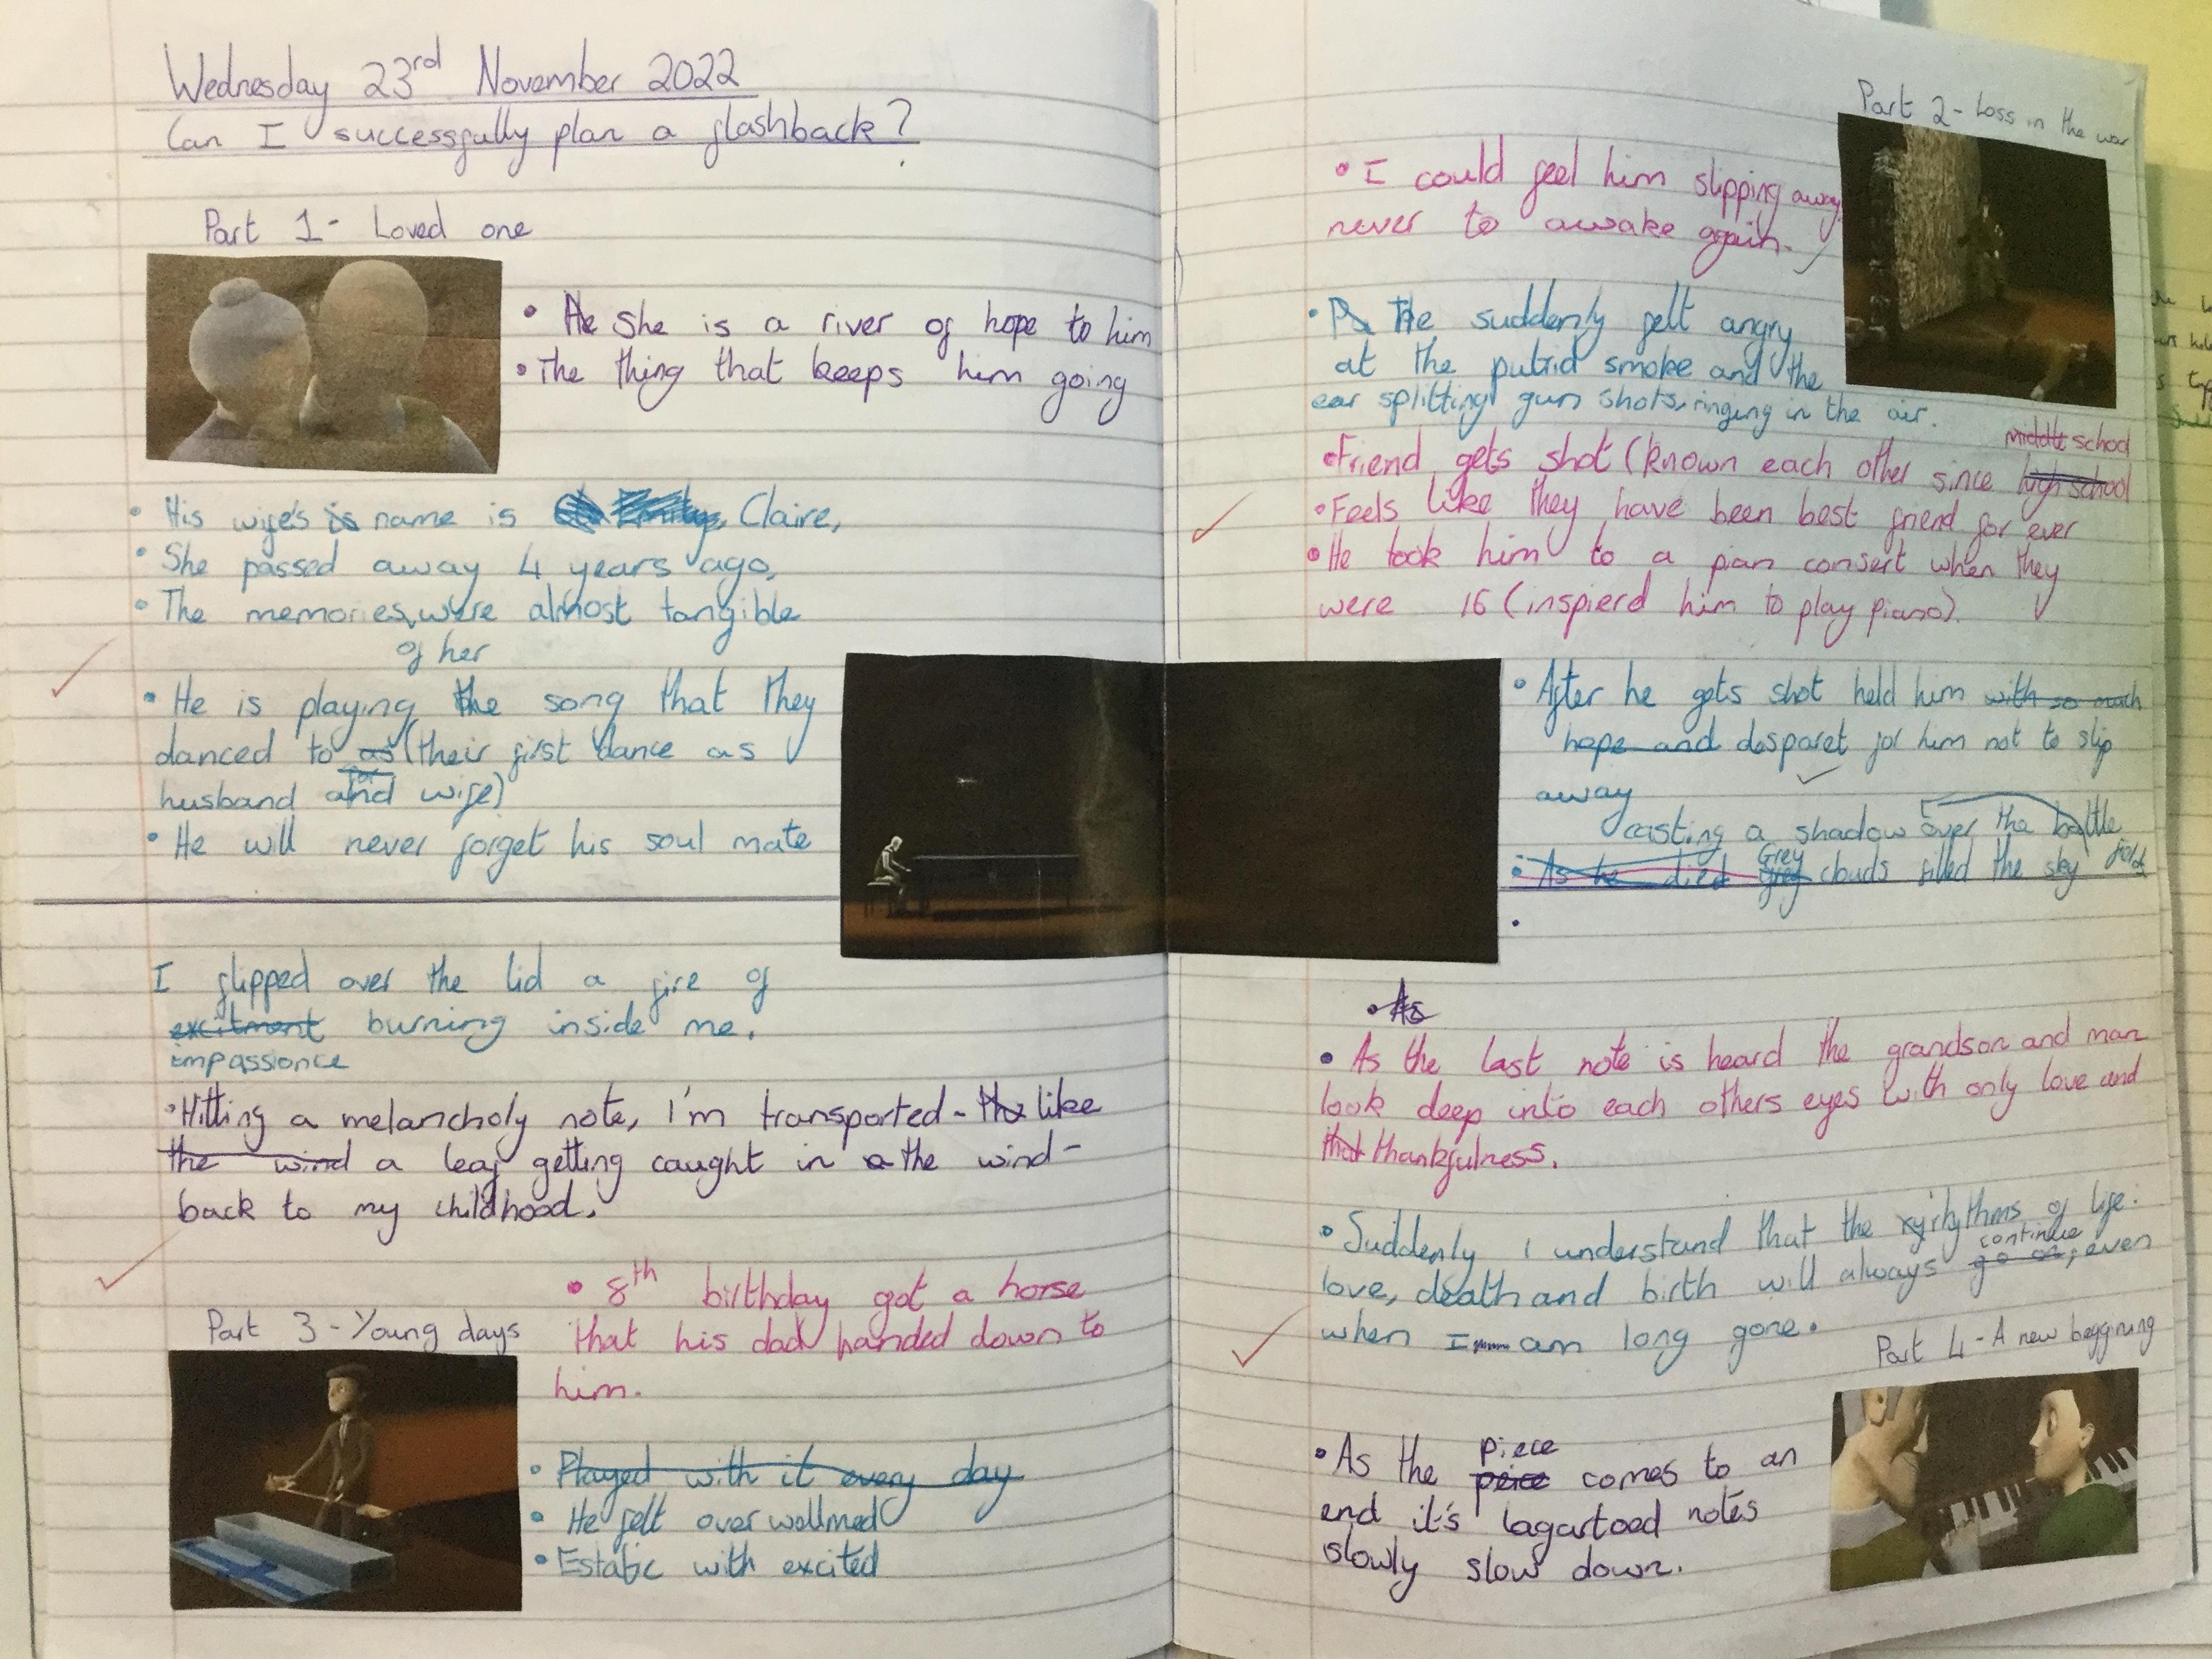 Wednesday 23rd November 2022
Can I successfully plan a flashback?
Part 1- Loved one
• He She is a river of hope to him
• The thing that keeps him going
• His wife's is name is Emily, Claire,
• She passed away 4 years ago,
• The memories were almost tangible
of her
• He is playing the song that they
danced to as (their first dance as
for
husband and wife)
• He will never forget his soul mate
I flipped over the lid a fire of
excitment burning inside me.
impassionce
• Hitting a melancholy note, I'm transported - the like
the wind a leaf getting caught in a the wind -
back to my childhood.
• 8th birthday got a horse
that his dad handed down to
him.
Part 3 - Young days
• Played with it every day
• He felt over wellmed
• Estatic with excited
Part 2 - Loss in the war
• I could feel him slipping away,
never to awake again.
• He suddenly felt angry
at the putrid smoke and the
ear splitting gun shots, ringing in the air.
middle school
• Friend gets shot (known each other since high school
• Feels like they have been best friend for ever
• He took him to a pian consert when they
were 16 (inspierd him to play piano).
• After he gets shot held him with so much
hope and desparet for him not to slip
away
casting a shadow over the battle
field
• As he died Grey clouds filled the sky
• As
• As the last note is heard the grandson and man
look deep into each others eyes with only love and
that thankfulness.
• Suddenly I understand that the ryrhythms of life:
continue
love, death and birth will always go on, even
when I am long gone.
Part 4 - A new beggining
piece
• As the peice comes to an
end it's lagartoed notes
slowly slow down.